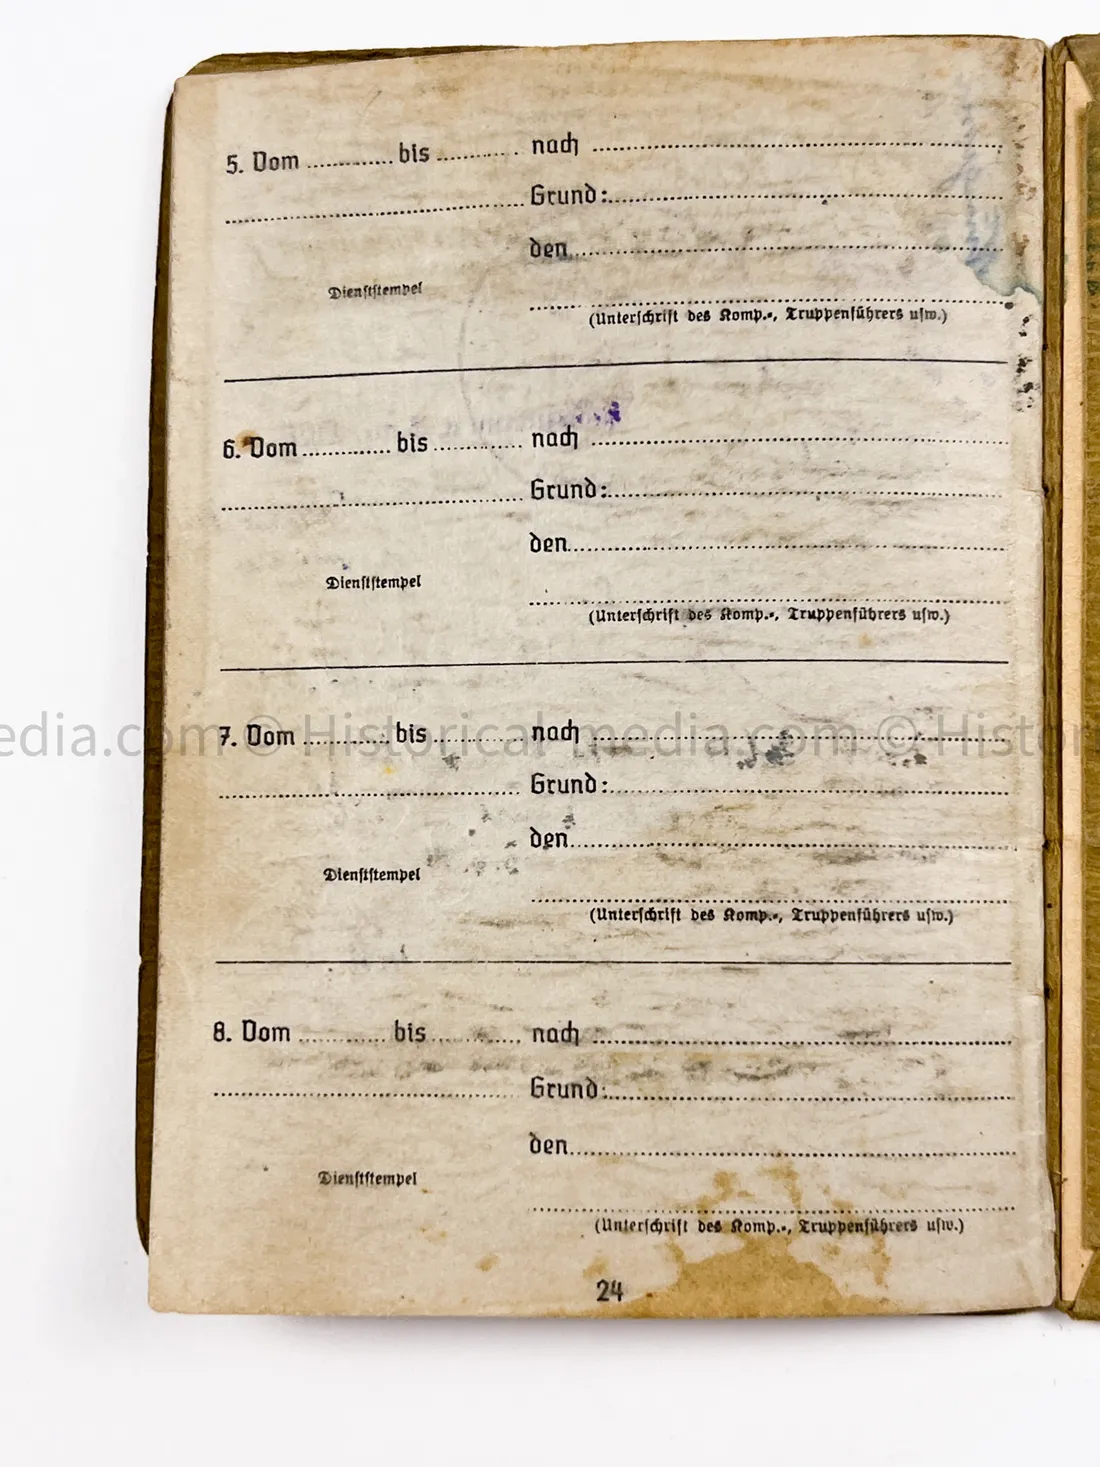 5. Vom .......... bis .......... nach ..........
Grund: ..........
den ..........
Dienststempel
(Unterschrift des Komp.-, Truppenführers usw.)
6. Vom .......... bis .......... nach ..........
Grund: ..........
den ..........
Dienststempel
(Unterschrift des Komp.-, Truppenführers usw.)
edia.com © Historical-media.com © Histor
7. Vom .......... bis .......... nach ..........
Grund: ..........
den ..........
Dienststempel
(Unterschrift des Komp.-, Truppenführers usw.)
8. Vom .......... bis .......... nach ..........
Grund: ..........
den ..........
Dienststempel
(Unterschrift des Komp.-, Truppenführers usw.)
24